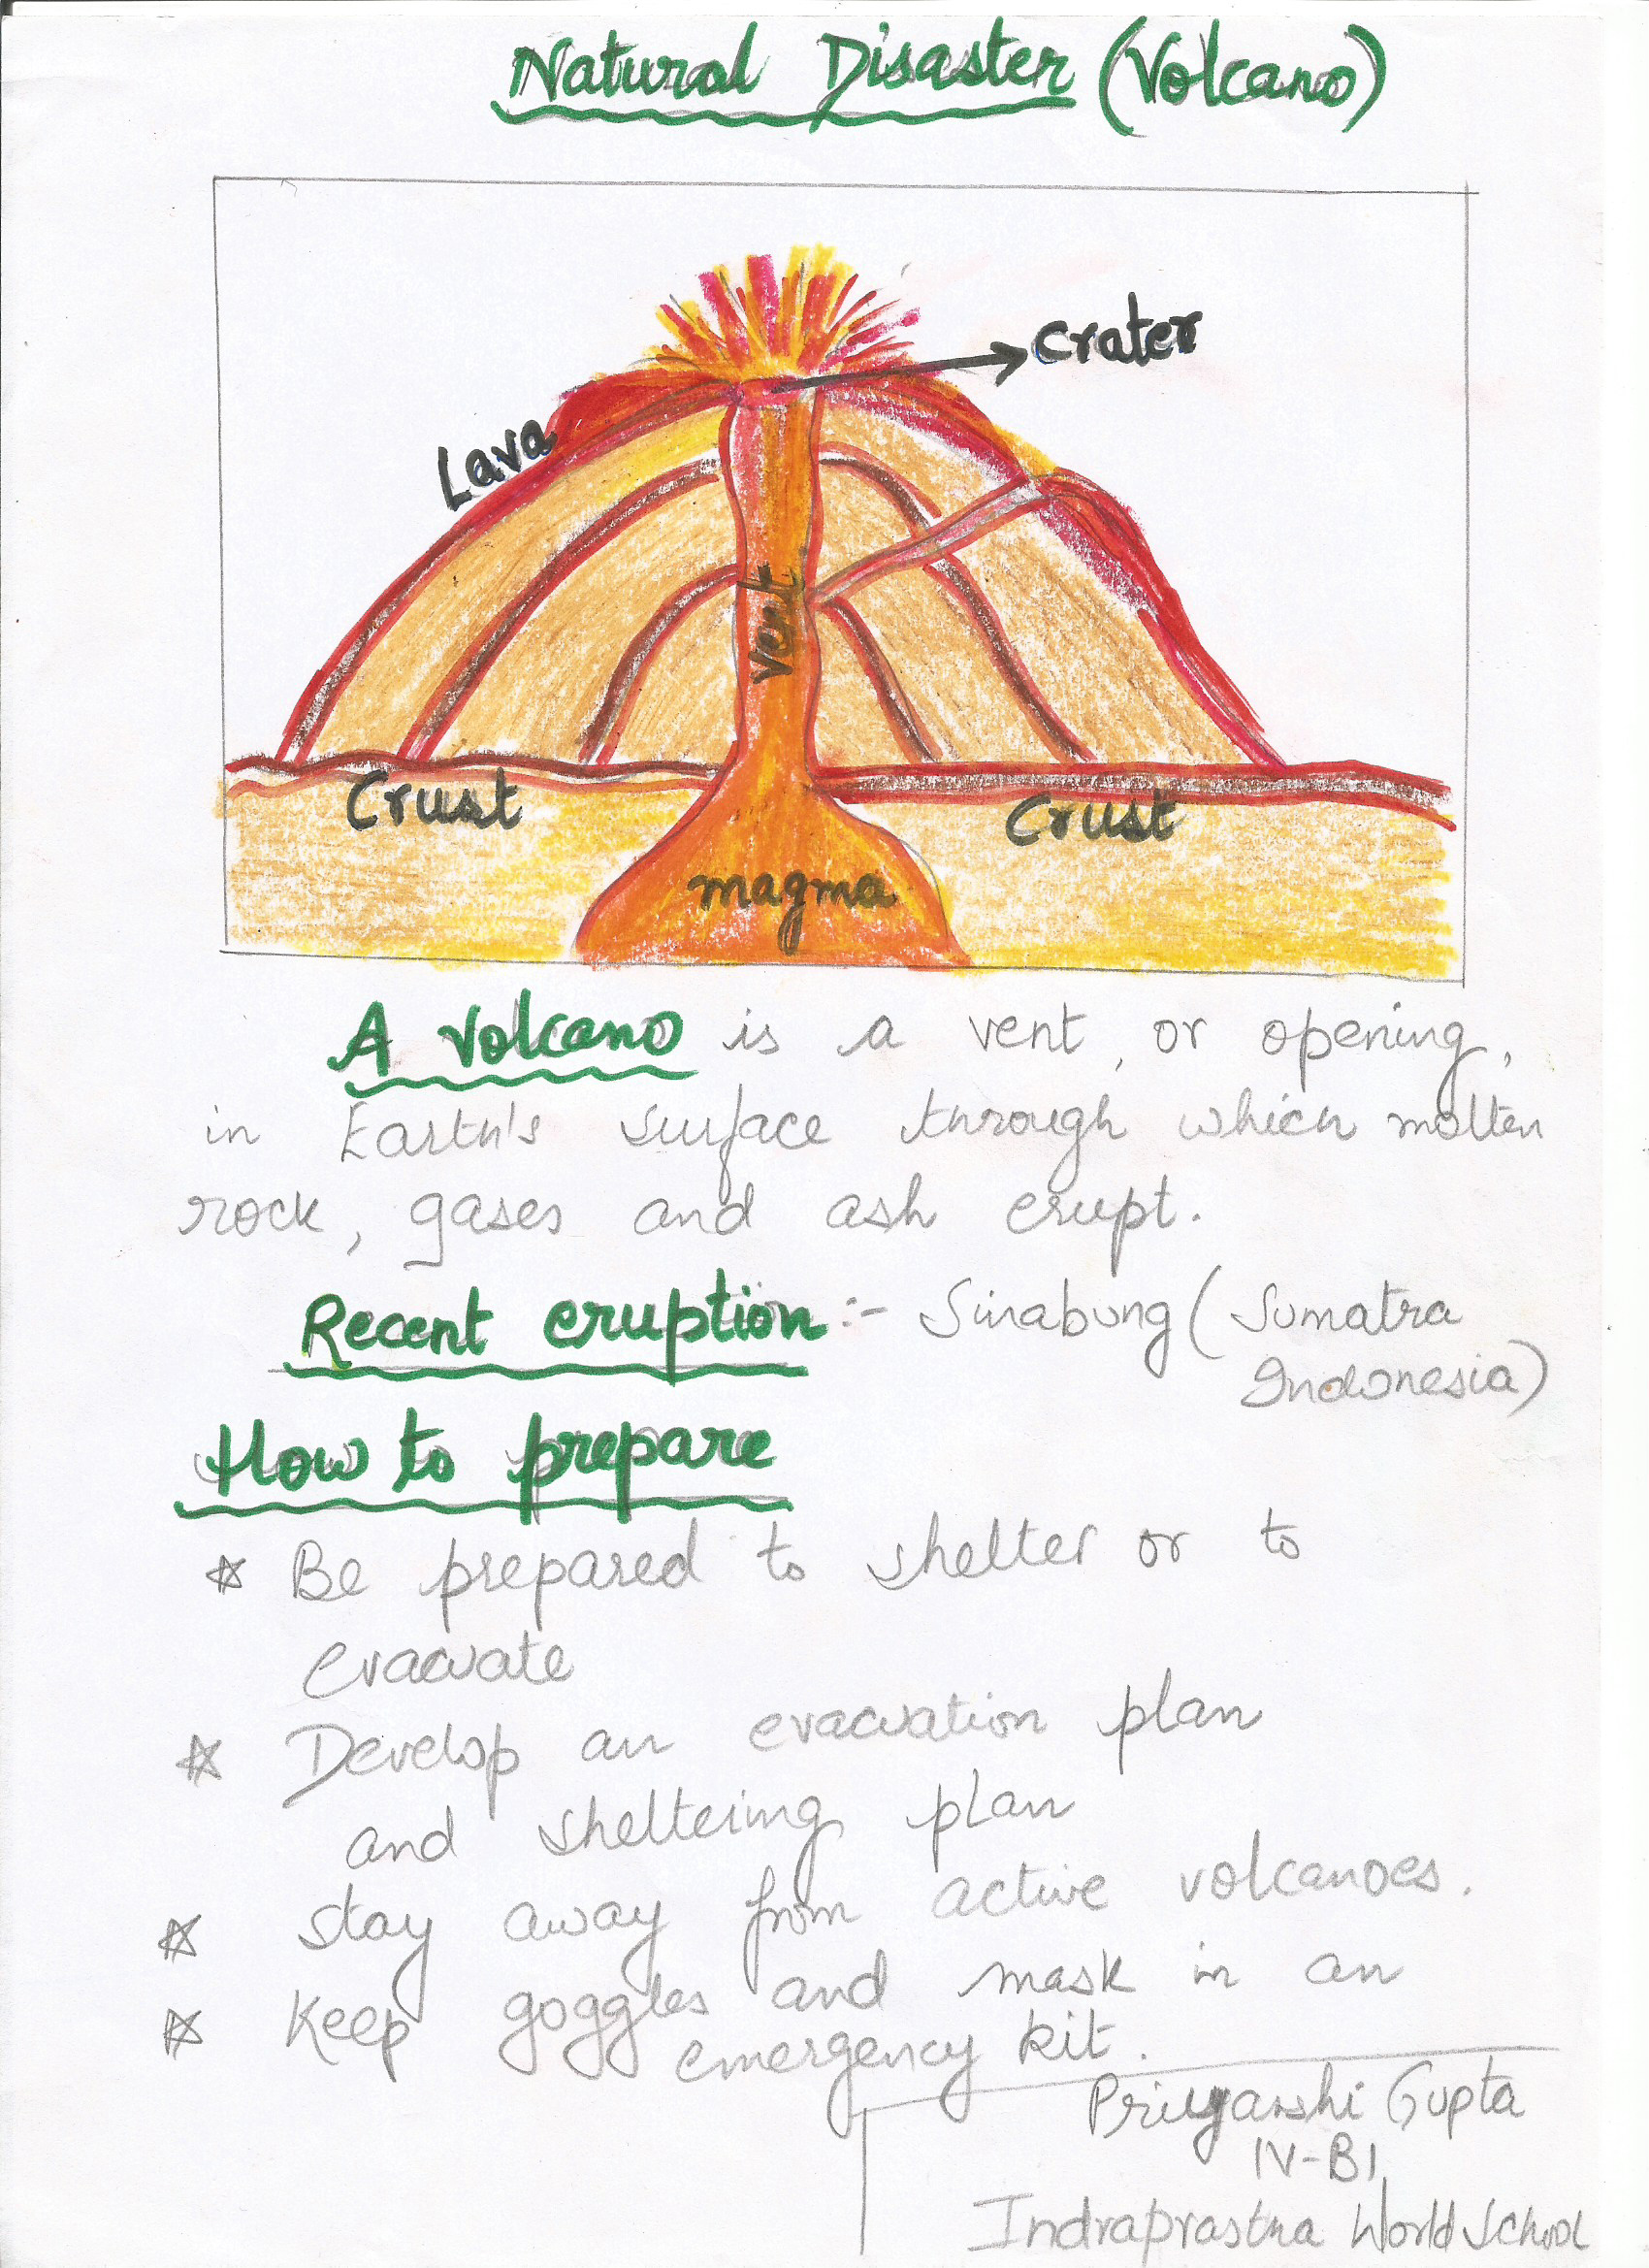 Natural Disaster (Volcano)
Crater
Lava
Vent
Crust
Crust
magma
A volcano is a vent, or opening,
in Earth's surface through which molten
rock, gases and ash erupt.
Recent eruption :- Sinabung (Sumatra
Indonesia)
How to prepare
* Be prepared to shelter or to
evacuate
* Develop an evacuation plan
and sheltering plan
* Stay away from active volcanoes.
* Keep goggles and mask in an
emergency kit.
Priyanshi Gupta
IV-B1
Indraprastha World School